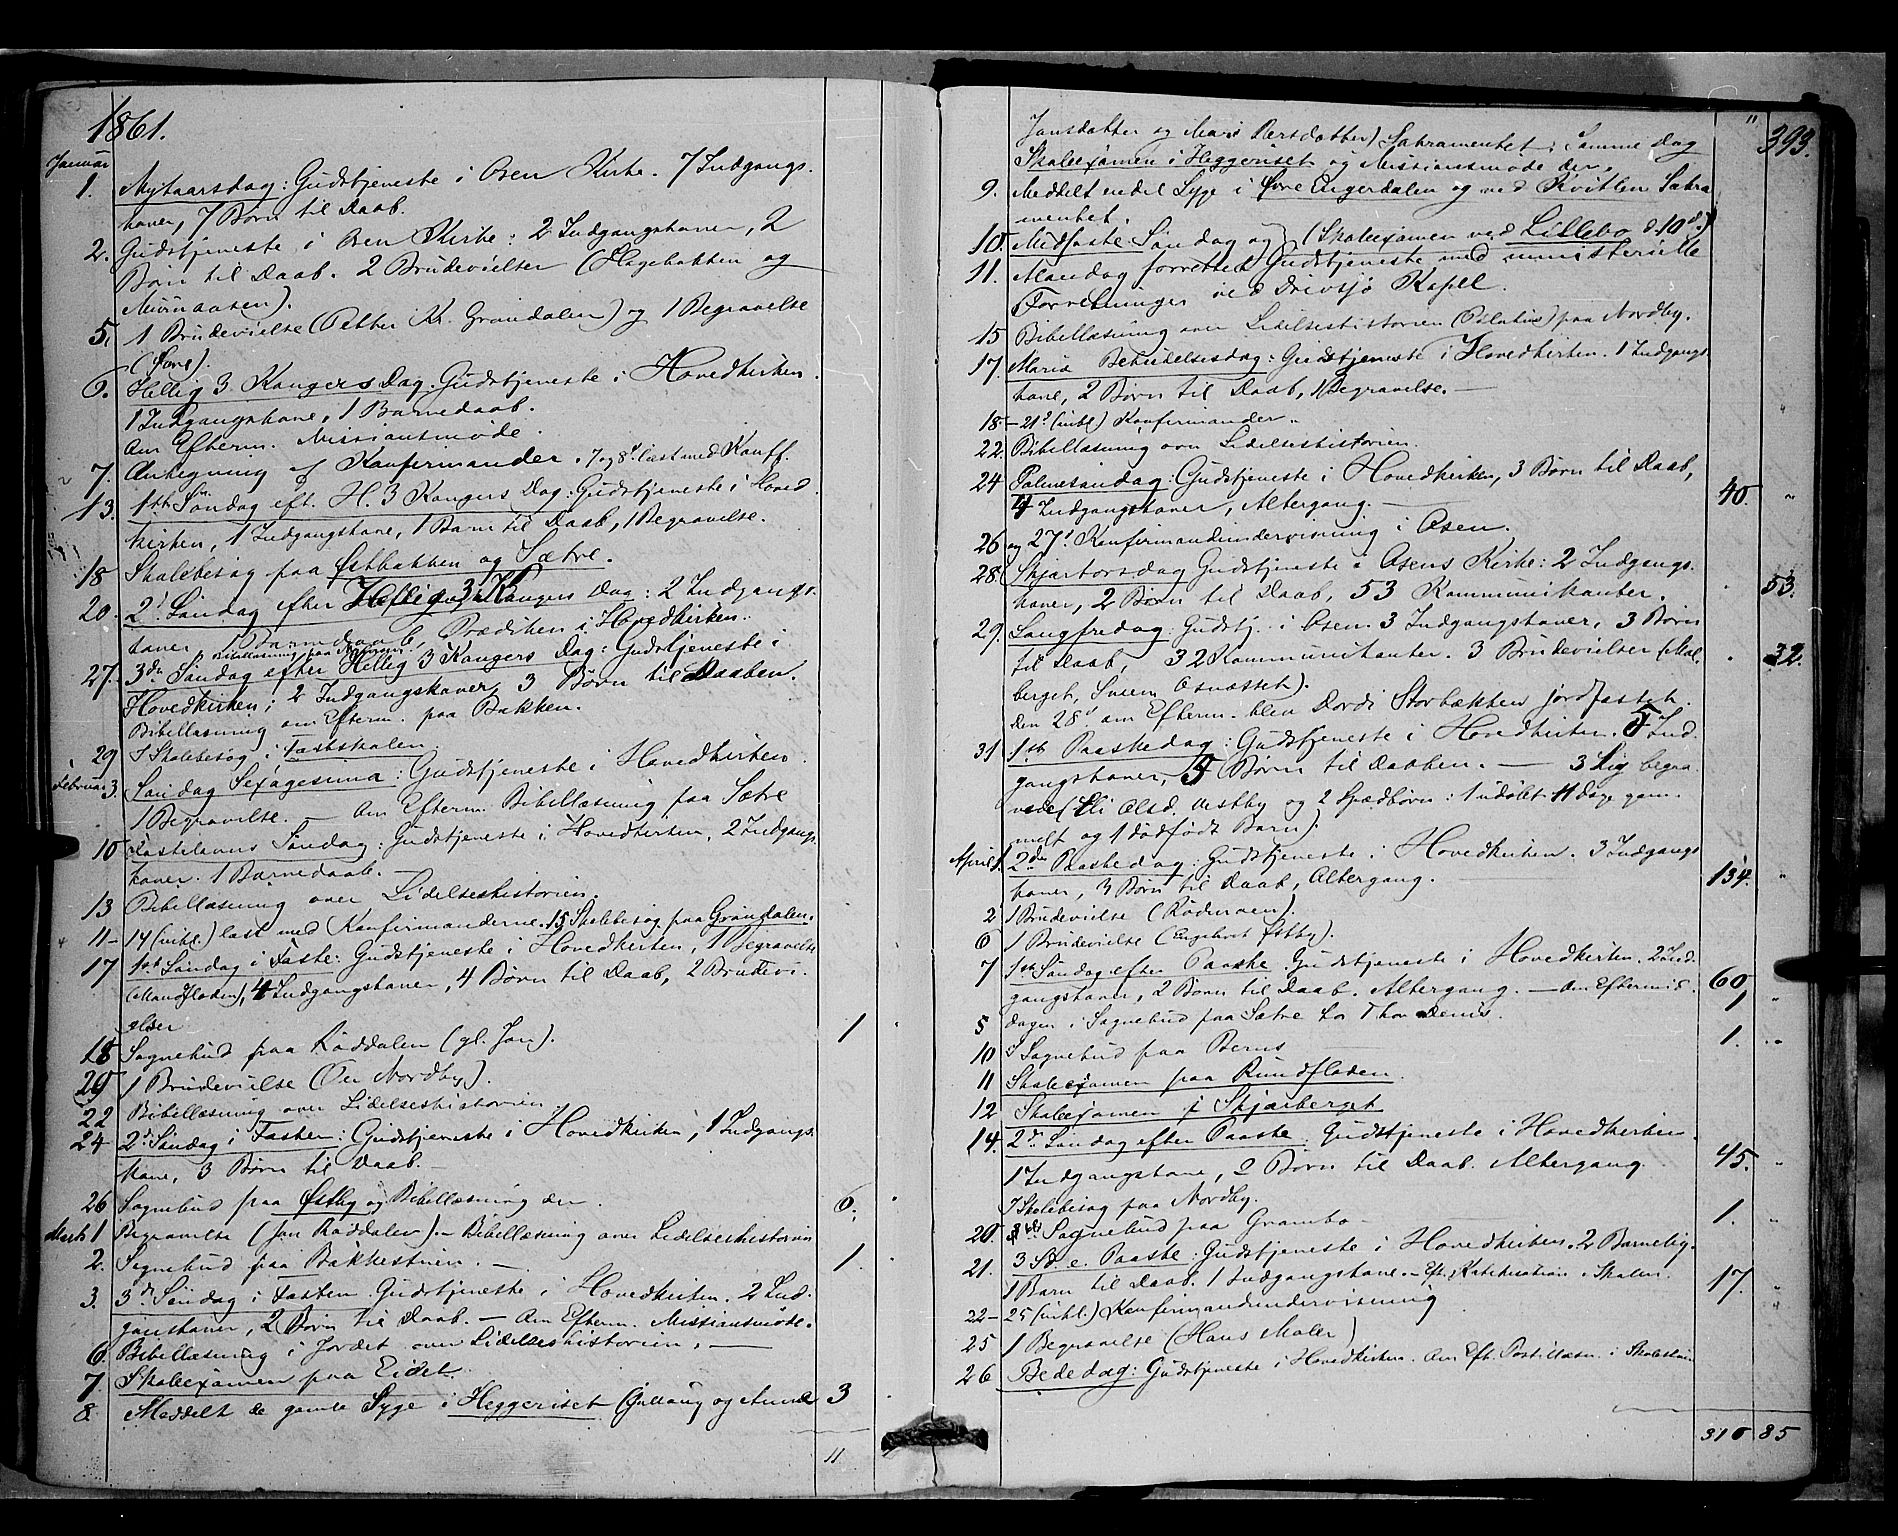 1861.
Januar
1. Nytaarsdag: Gudstjeneste i Osen Kirke. 7 Indgangs.
koner, 7 Børn til Daab.
2. Gudstjeneste i Osen Kirke: 2 Indgangskoner, 2
Børn til Daab. 2 Brudevielser (Hagebakken og
5. 1 Brudevielse (Petter Kr. Grøndalen) og 1 Begravelse
6. Hellig 3 Kongers Dag. Gudstjeneste i Hovedkirken.
1 Indgangskone, 1 Barnedaab.
Om Efterm. Missionsmøde.
7. Antegning af Konfirmander. 7 og 8d læst med Konf.
13. 1ste Søndag eft. H. 3 Kongers Dag: Gudstjeneste i Hoved
kirken, 1 Indgangskone, 1 Barn til Daab, 1 Begravelse.
18 Skolebesøg paa Østbakken og Sætre.
20. 2d Søndag efter Hellig 3 Kongers Dag: 2 Indgangs.
koner, 1 Barnedaab, Prædiken i Hovedkirken.
27. 3de Søndag efter Hellig 3 Kongers Dag: Gudstjeneste i
Hovedkirken; 2 Indgangskoner, 3 Børn til Daaben.
Bibellæsning om Efterm. paa Bakken.
29 Skolebesøg i Fastskolen
Februar 3. Søndag Sexagesima: Gudstjeneste i Hovedkirken.
1 Begravelse. — Om Efterm. Bibellæsning paa Sætre
10 Fastelavns Søndag: Gudstjeneste i Hovedkirken, 2 Indgangs.
koner. 1 Barnedaab. —
13 Bibellæsning over Lidelseshistorien.
11- 14 (inkl.) læst med Konfirmanderne. 15 Skolebesøg paa Grøndalen.
17 1ste Søndag i Faste: Gudstjeneste i Hovedkirken, 1 Begravelse
(Mandfloden), 4 Indgangskoner, 4 Børn til Daab, 2 Brudevi.
elser 1
18 Sognebud paa Røddalen (gl. Jon).
20 1 Brudevielse (Ole Nordby).
22 Bibellæsning over Lidelseshistorien.
24 2d Søndag i Fasten: Gudstjeneste i Hovedkirken, 1 Indgangs.
kone, 3 Børn til Daab. —
26 Sognebud paa Østby og Bibellæsning der. 6.
Marts 1 Begravelse (Jon Røddalen). — Bibellæsning over Lidelseshistorien
2. Sognebud paa Bakkestuen. — 1.
3. 3d Søndag i Fasten. Gudstjeneste i Hovedkirken. 2 Ind.
gangskoner, 2 Børn til Daab. — Om Efterm. Missionsmøde.
6. Bibellæsning i Jordet over Lidelseshistorien. —
7. Skolexamen paa Eidet.
8. Meddelt de gamle Syge i Heggeriset (Gullaug og 3
11
11 393.
Jonsdatter og Mari Persdatter) Sakramentet; samme dag
Skolexamen i Heggeriset og Missionsmøde der.
9. Meddelt endel Syge i Øvre Engerdalen og ved Kvitlen Sakra
mentet.
10. Midfaste Søndag og (Skolexamen ved Lillebo d. 10d)
11. Mandag forrettet Gudstjeneste med ministerielle
Forretninger ved Drevsjø Kapel.
15 Bibellæsning over Lidelseshistorien (Pilatus) paa Nordby.
17. Mariæ Bebudelsesdag: Gudstjeneste i Hovedkirken. 1 Indgangs.
kone, 2 Børn til Daab, 1 Begravelse. —
18 - 21d (inkl) Konfirmander.
22. Bibellæsning over Lidelseshistorien.
24 Palmesøndag: Gudstjeneste i Hovedkirken, 3 Børn til Daab,
4 Indgangskoner, Altergang. — 40. "
26 og 27d. Konfirmandundervisning i Osen.
28. Skjærtorsdag Gudstjeneste i Osens Kirke: 2 Indgangs.
koner, 2 Børn til Daab, 53 Kommunikanter. 53.
29. Langfredag: Gudstj. i Osen. 3 Indgangskoner, 3 Børn
til Daab, 32 Kommunikanter. 3 Brudevielser (Mol. 32.
berget, Sveen, Osnæsset).
Den 28d om Efterm. blev Dordi Storbækken jordfæstet.
31 1ste Paaskedag: Gudstjeneste i Hovedkirken. 5 Ind
gangskoner, 5 Børn til Daaben. — 3 Lig begra.
vede (Eli Olsd. Vestby og 2 Spædbørn: 1 udøbt 11 Dage gam.
melt og 1 dødfødt Barn).
April 1. 2den Paaskedag: Gudstjeneste i Hovedkirken. 3 Indgangs
koner, 3 Børn til Daab, Altergang. 134. "
2 1 Brudevielse (Rødmoen).
6 1 Brudevielse (Engebret Østby).
7 1ste Søndag efter Paaske Gudstjeneste i Hovedkirken. 2 Ind.
gangskoner, 2 Børn til Daab. Altergang. — Om Eftermid. 60,
5 dagen i Sognebud paa Sætre hos Thor Denis. 1 "
10 Sognebud paa Berns — 1. "
11 Skolexamen paa Rundfloden.
12 Skolexamen i Skjærberget
14. 2d Søndag efter Paaske. Gudstjeneste i Hovedkirken.
1 Indgangskone, 2 Børn til Daab. Altergang. 45. "
Skolebesøg paa Nordby.
20. Sognebud paa Grambo — 1. "
21. 3 S. e. Paaske: Gudstjeneste i Hovedkirken. 2 Barnelig.
1 Barn til Daab. 1 Indgangskone. — Eft. Katekisation i Skolen. 17. "
22- 25 (inkl.) Konfirmandundervisning
25 1 Begravelse (Hans Maler)
26 Bededag: Gudstjeneste i Hovedkirken. Om Eft. Postillæsn. i Skolestuen
310 85